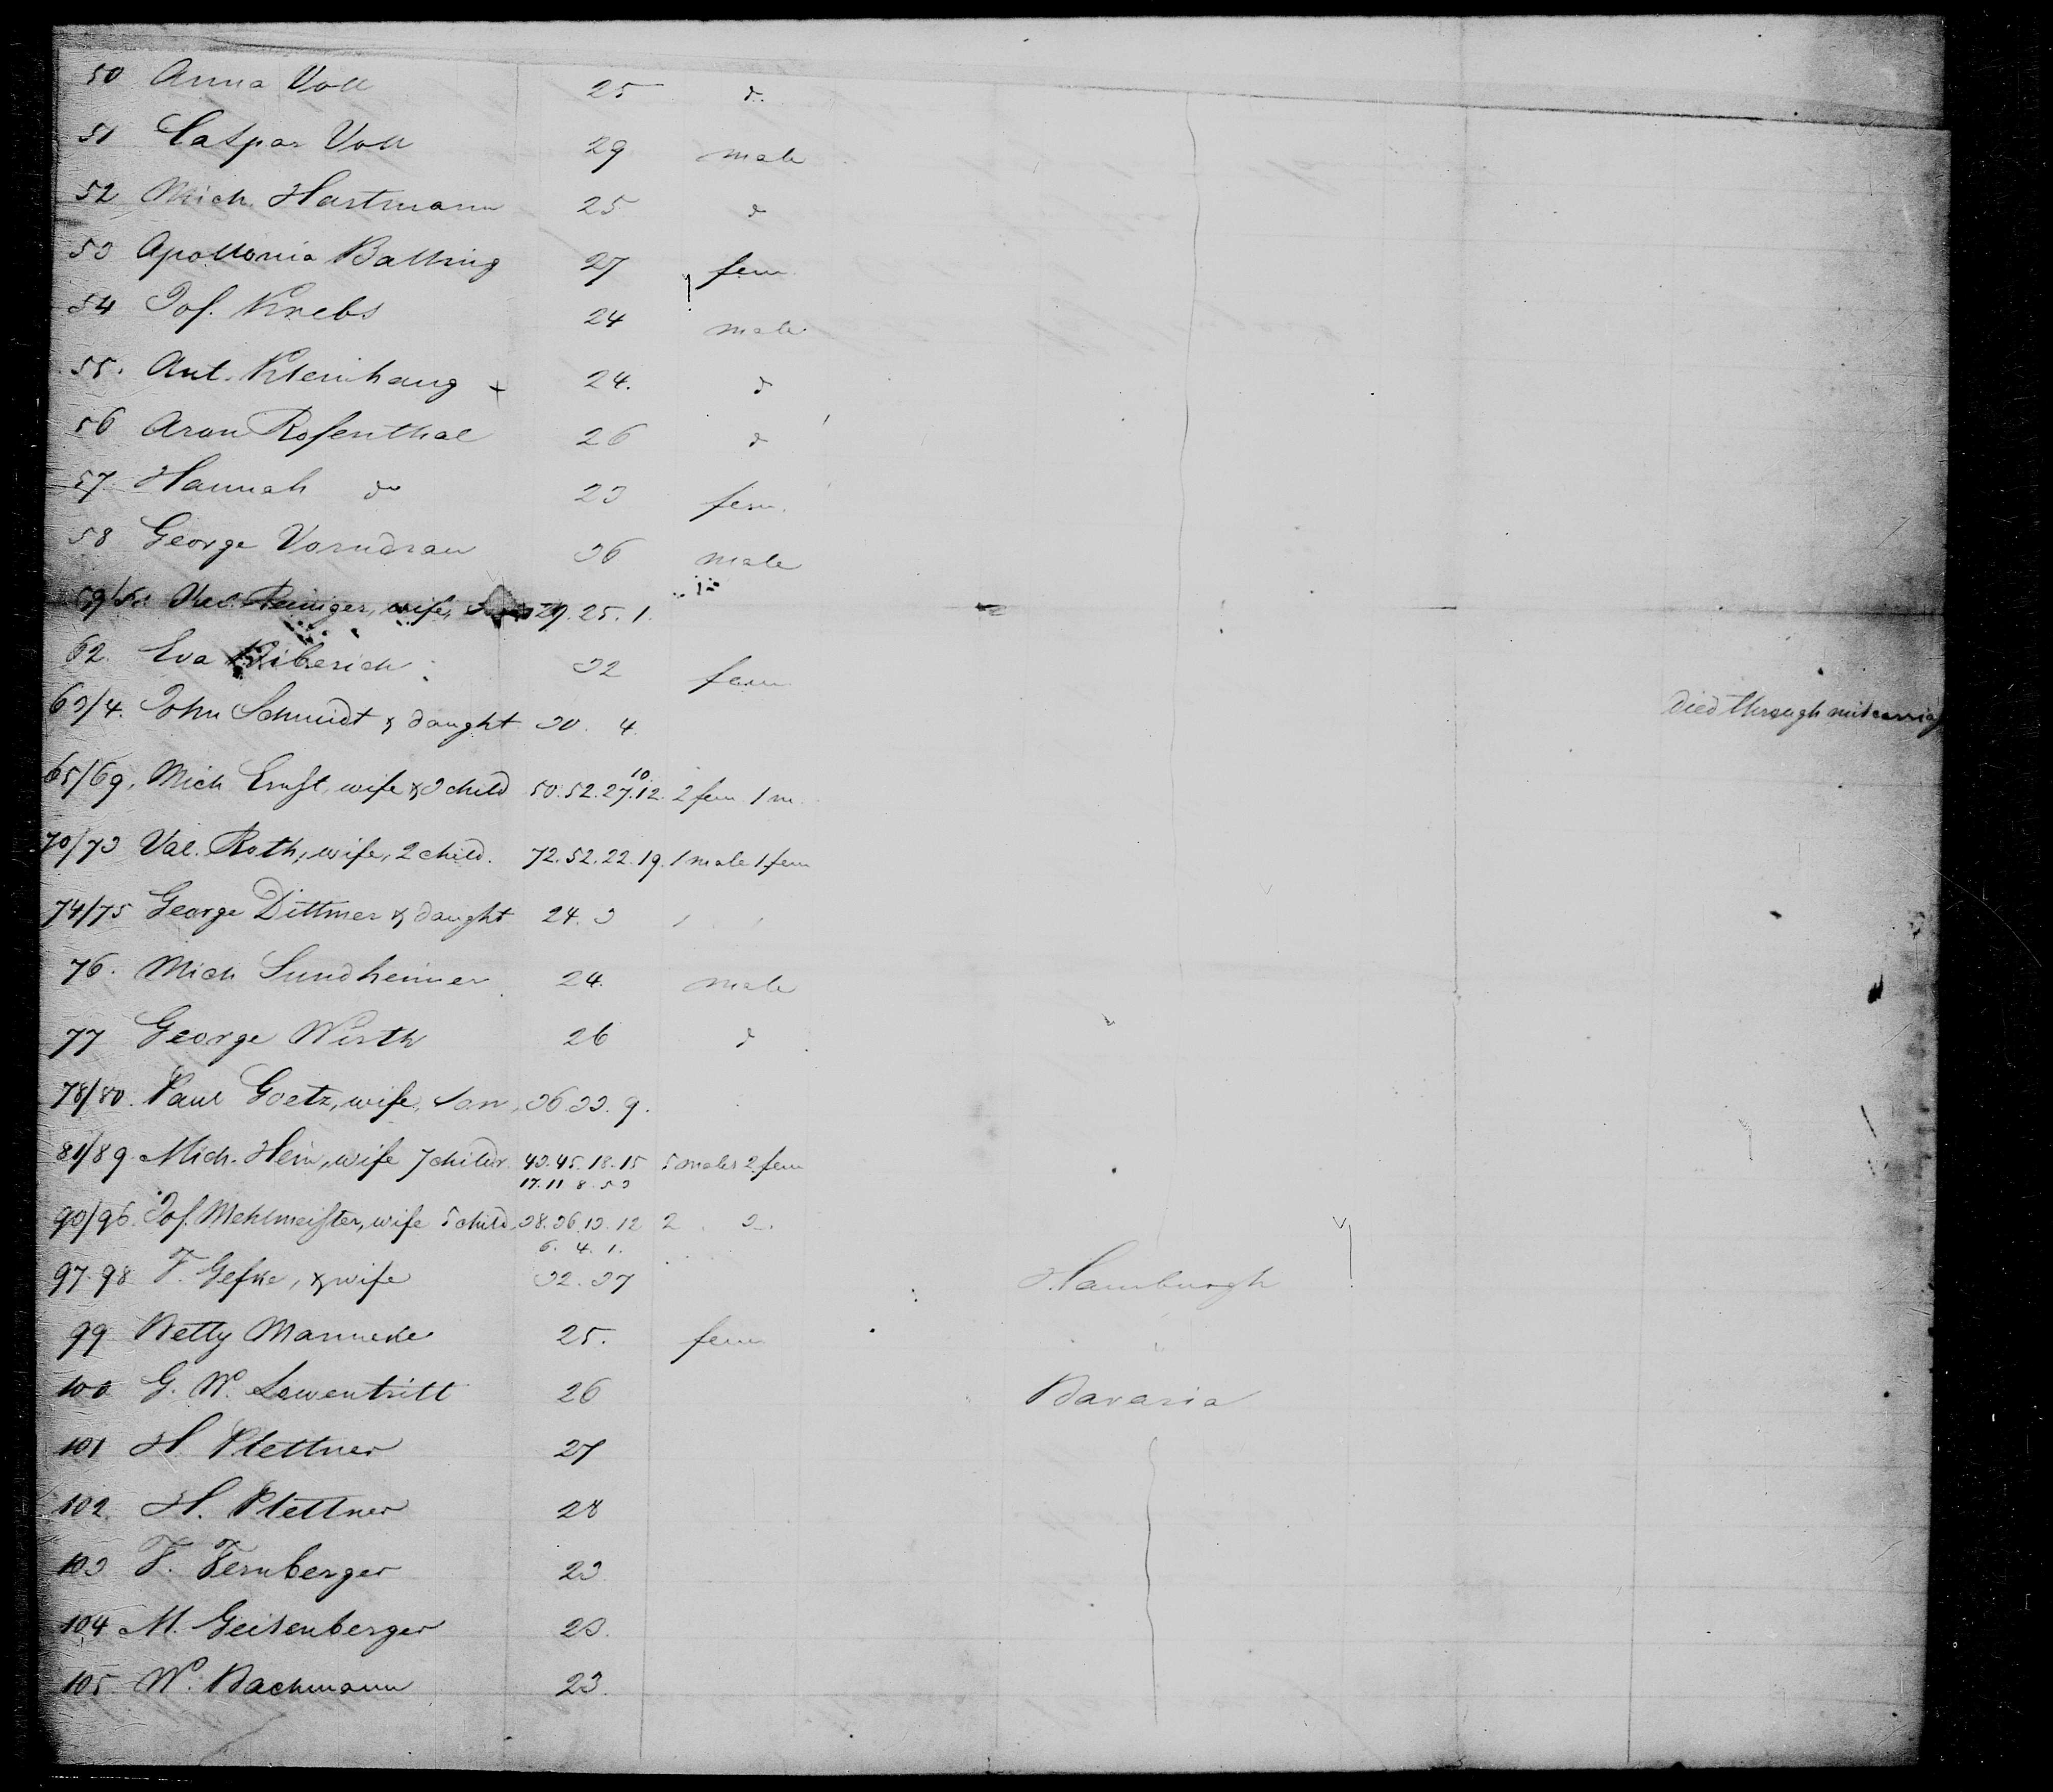 50 Anna Voll 25 do.
51 Caspar Voll 29 male
52 Mich. Hartmann 25 do
53 Apollonia Balling 27 fem.
54 Jos. Krebs 24 male
55. Ant. Kleinhang + 24. do
56 Aron Rosenthal 26 do
57 Hannah do 23 fem.
58 George Vorndran 36 male
59/61 Reiniger, wife, 29. 25. 1.
62. Eva 32 fem
63/4. John Schmidt & daught 30. 4. Died through miscarriag
65/69. Mich Ernst, wife & 3 child 50. 52. 27. 12. 10 2 fem 1 m.
70/73 Val. Roth, wife, 2 child. 72. 52. 22. 19. 1 male 1 fem
74/75 George Dittmer & daught 24. 3
76. Mich Sundheimer 24. male
77 George Wirth 26 do
78/80. Paul Goetz, wife, son, 36. 33. 9.
81/89. Mich. Hein, wife 7 childr. 43. 45. 18. 15 5 males 2 fem
17. 11 8. 5 3
90/96. Jos. Mehlmeister, wife 5 child, 38. 36. 13. 12 2. 3.
6. 4. 1.
97. 98 F. Gefke, & wife 32. 37 Hamburgh
99 Betty Manneke 25. fem "
100 G. W. Lowentritt 26 Bavaria
101 H. Plettner 27
102. H. Plettner 28
103 F. Fernberger 23
104 M. Geisenberger 23.
105. W. Bachmann 23.